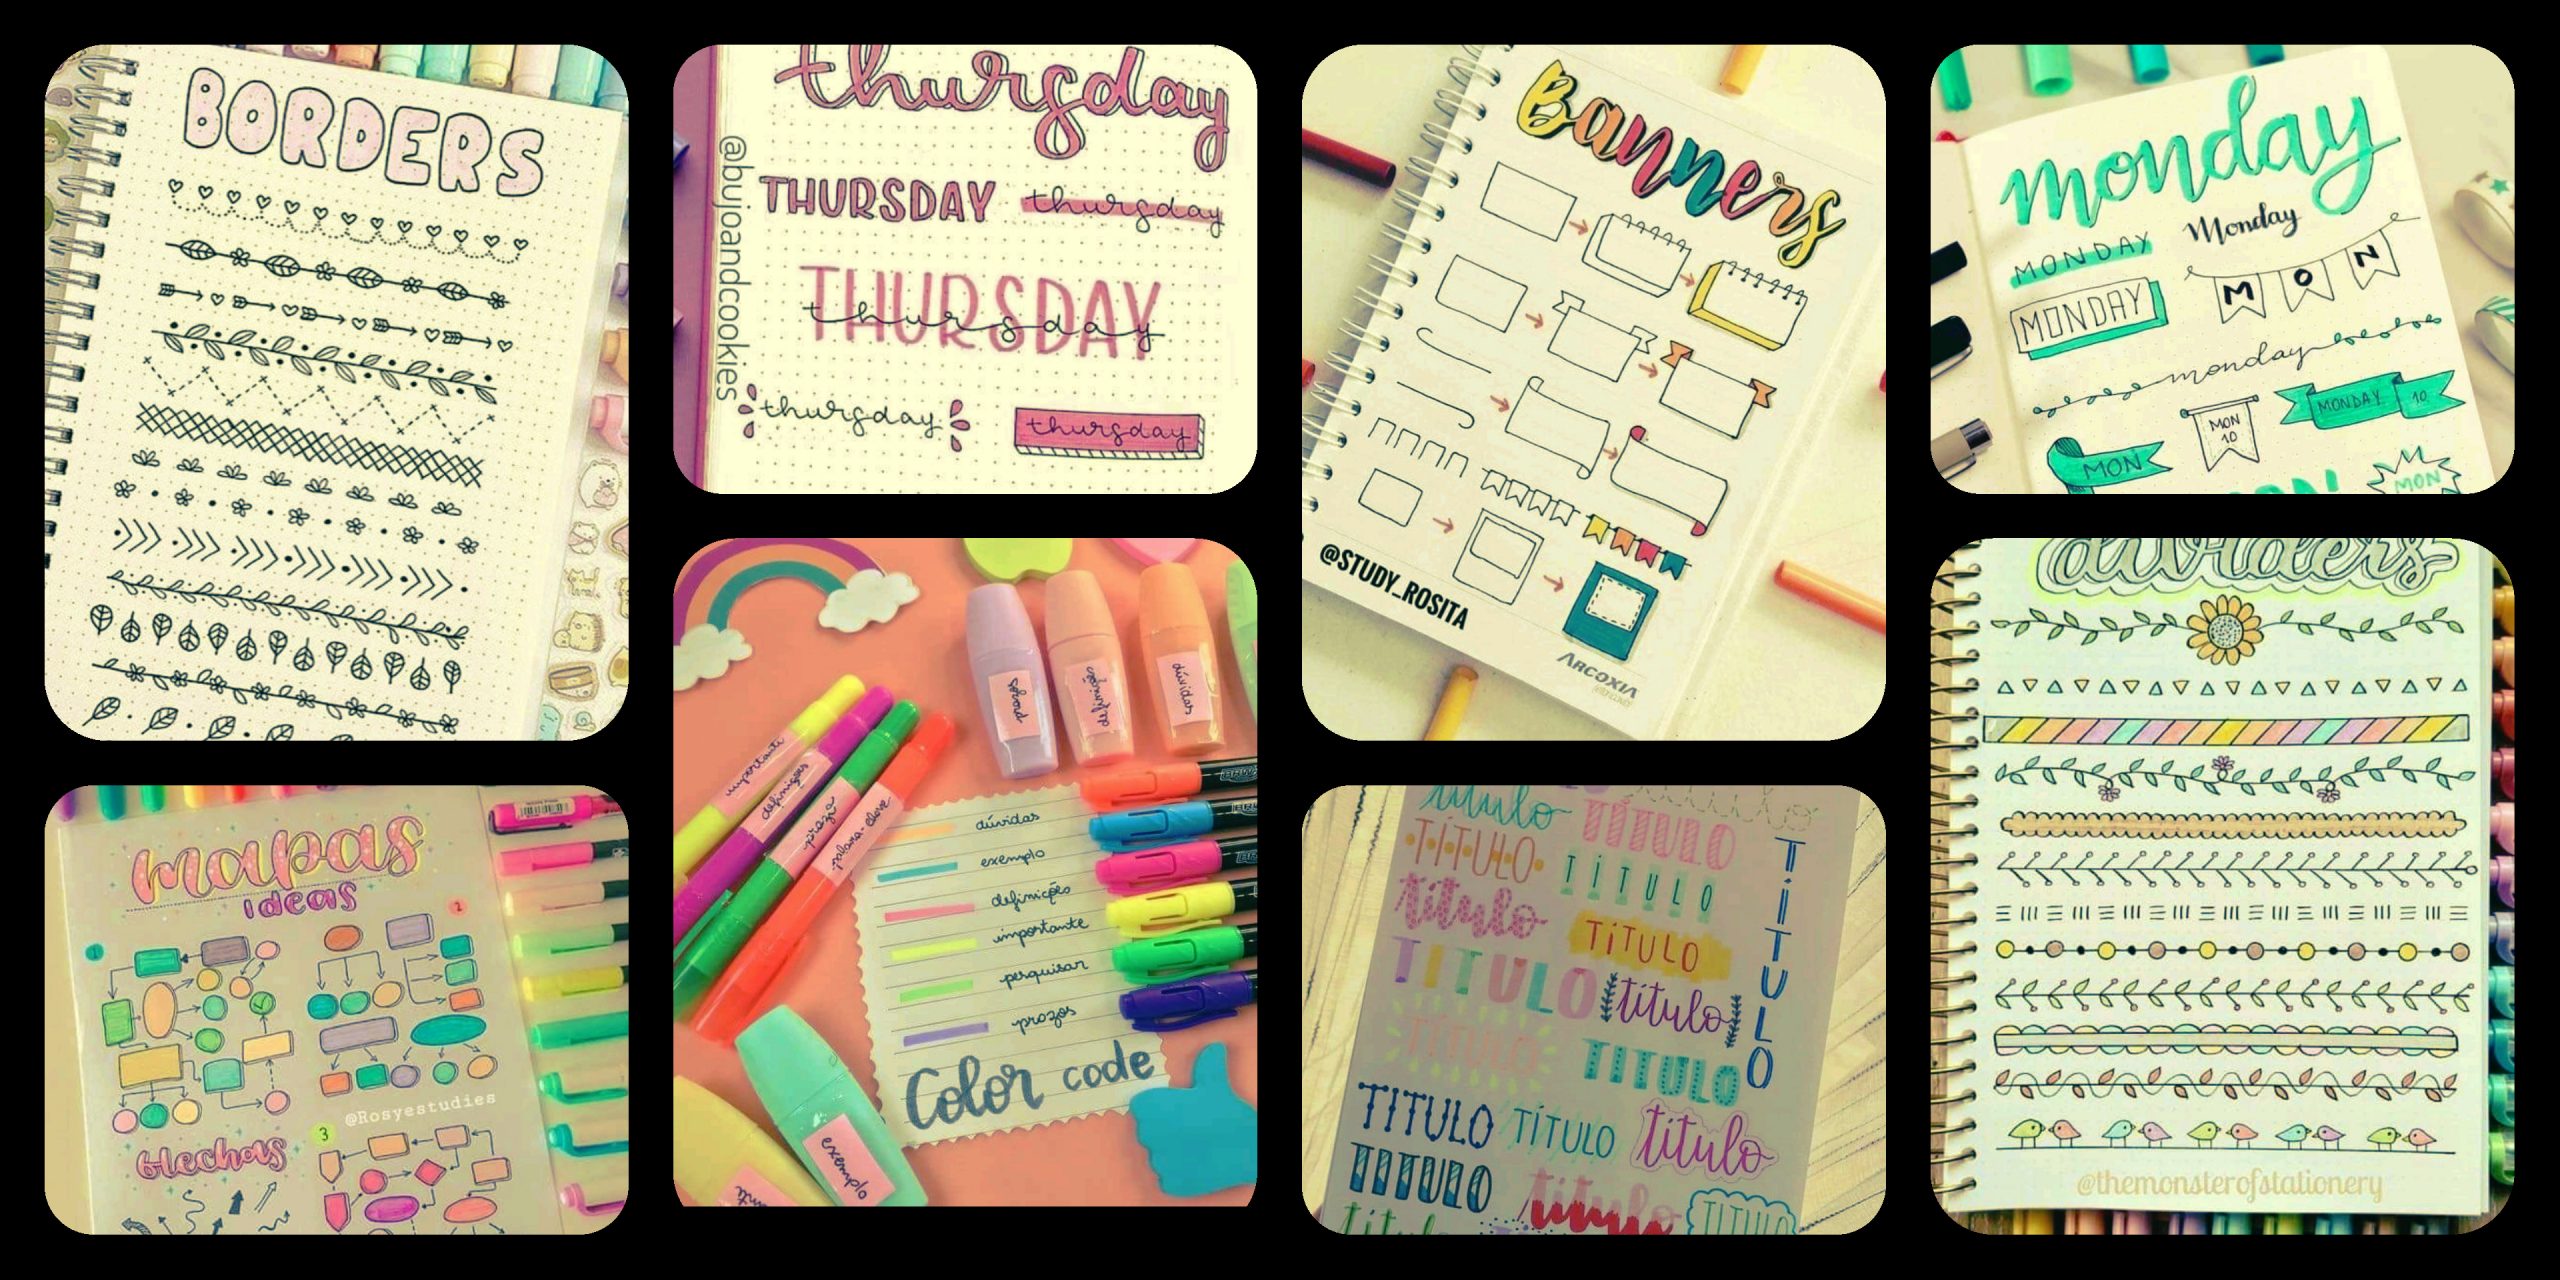 BORDERS
thursday
THURSDAY
thursday
THURSDAY
thursday
thursday
thursday
@bujoandcookies
Banners
@STUDY_ROSITA
ARCOXIA
monday
MONDAY
Monday
MONDAY
M O N
monday
MONDAY 10
MON
10
MON
MON
mapas
ideas
1
2
@Rosyestudies
3
flechas
prazos
definições
dúvidas
importante
definições
prazo
palavra-chave
dúvidas
exemplo
definições
importante
pesquisar
prazos
Color code
exemplo
título
TÍTULO
TÍTULO
TÍTULO
título
TÍTULO
TÍTULO
título
TÍTULO
TÍTULO
TÍTULO
TÍTULO
TÍTULO
título
TÍTULO
título
TÍTULO
dividers
@themonsterofstationery